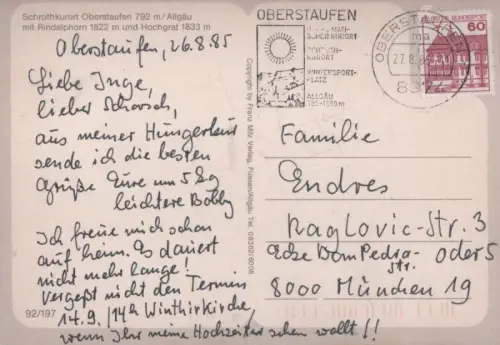 Schrothkurort Oberstaufen 792 m/Allgäu
mit Rindalphorn 1822 m und Hochgrat 1833 m
Oberstaufen, 26.8.85
Liebe Inge,
lieber Schorsch,
aus meiner Hungerkur
sende ich die besten
Grüße Eure um 5 kg
leichtere Bobby
Ich freue mich schon
auf heim. Es dauert
nicht mehr lange!
Vergeßt nicht den Termin
14.9./14h Winthirkirche,
wenn Ihr meine Hochzeiter sehen wollt!!
92/197
Copyright by Franz Milz Verlag, Füssen/Allgäu Tel.
OBERSTAUFEN
KURORT
WINTERSPORT-
PLATZ
ALLGÄU
OBERSTAUFEN
ma
27.8.
8974
DEUTSCHE BUNDESPOST
60
Familie
Endres
Raglovic-Str. 3
Ecke Dom Pedro- oder 5
Str.
8000 München 19